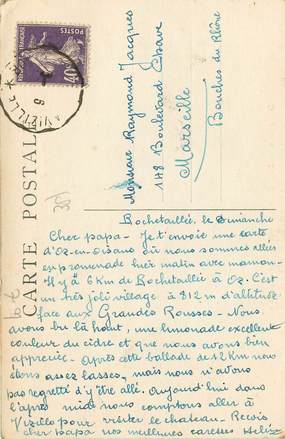 CARTE POSTALE
REPUBLIQUE FRANÇAISE
40c
VIZILLE
Monsieur Raymond Jacques
148 Boulevard Chave
Marseille
Bouches du Rhône
Rochetaillée. le Dimanche
Cher papa - Je t'envoie une carte
d'Oz-en-Oisans où nous sommes allées
en promenade hier matin avec maman-
Il y a 6 Km de Rochetaillée à Oz. C'est
un très joli village à 812 m d'altitude
face aux Grandes Rousses - Nous
avons bu là haut, une limonade excellente
couleur du cidre et que nous avons bien
appréciée - Après cette ballade de 12 Km nous
étions assez lasses, mais nous n'avons
pas regretté d'y être allé. Aujourd'hui dans
l'après midi nous comptons aller à
Vizille pour visiter le chateau. Reçois
cher papa nos meilleures caresses